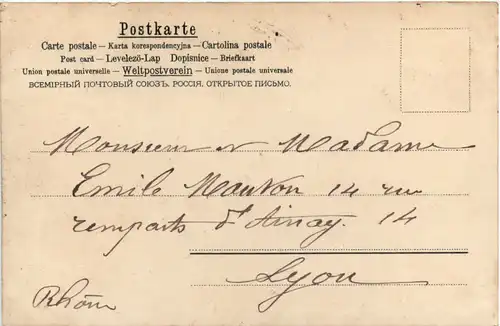 Postkarte
Carte postale – Karta korespondencyjna – Cartolina postale
Post card – Levelező-Lap Dopisnice – Briefkaart
Union postale universelle – Weltpostverein – Unione postale universale
ВСЕМІРНЫЙ ПОЧТОВЫЙ СОЮЗЪ. РОССІЯ. ОТКРЫТОЕ ПИСЬМО.
Monsieur et Madame
Emile 14 rue
remparts d'Ainay. 14
Lyon
Rhône